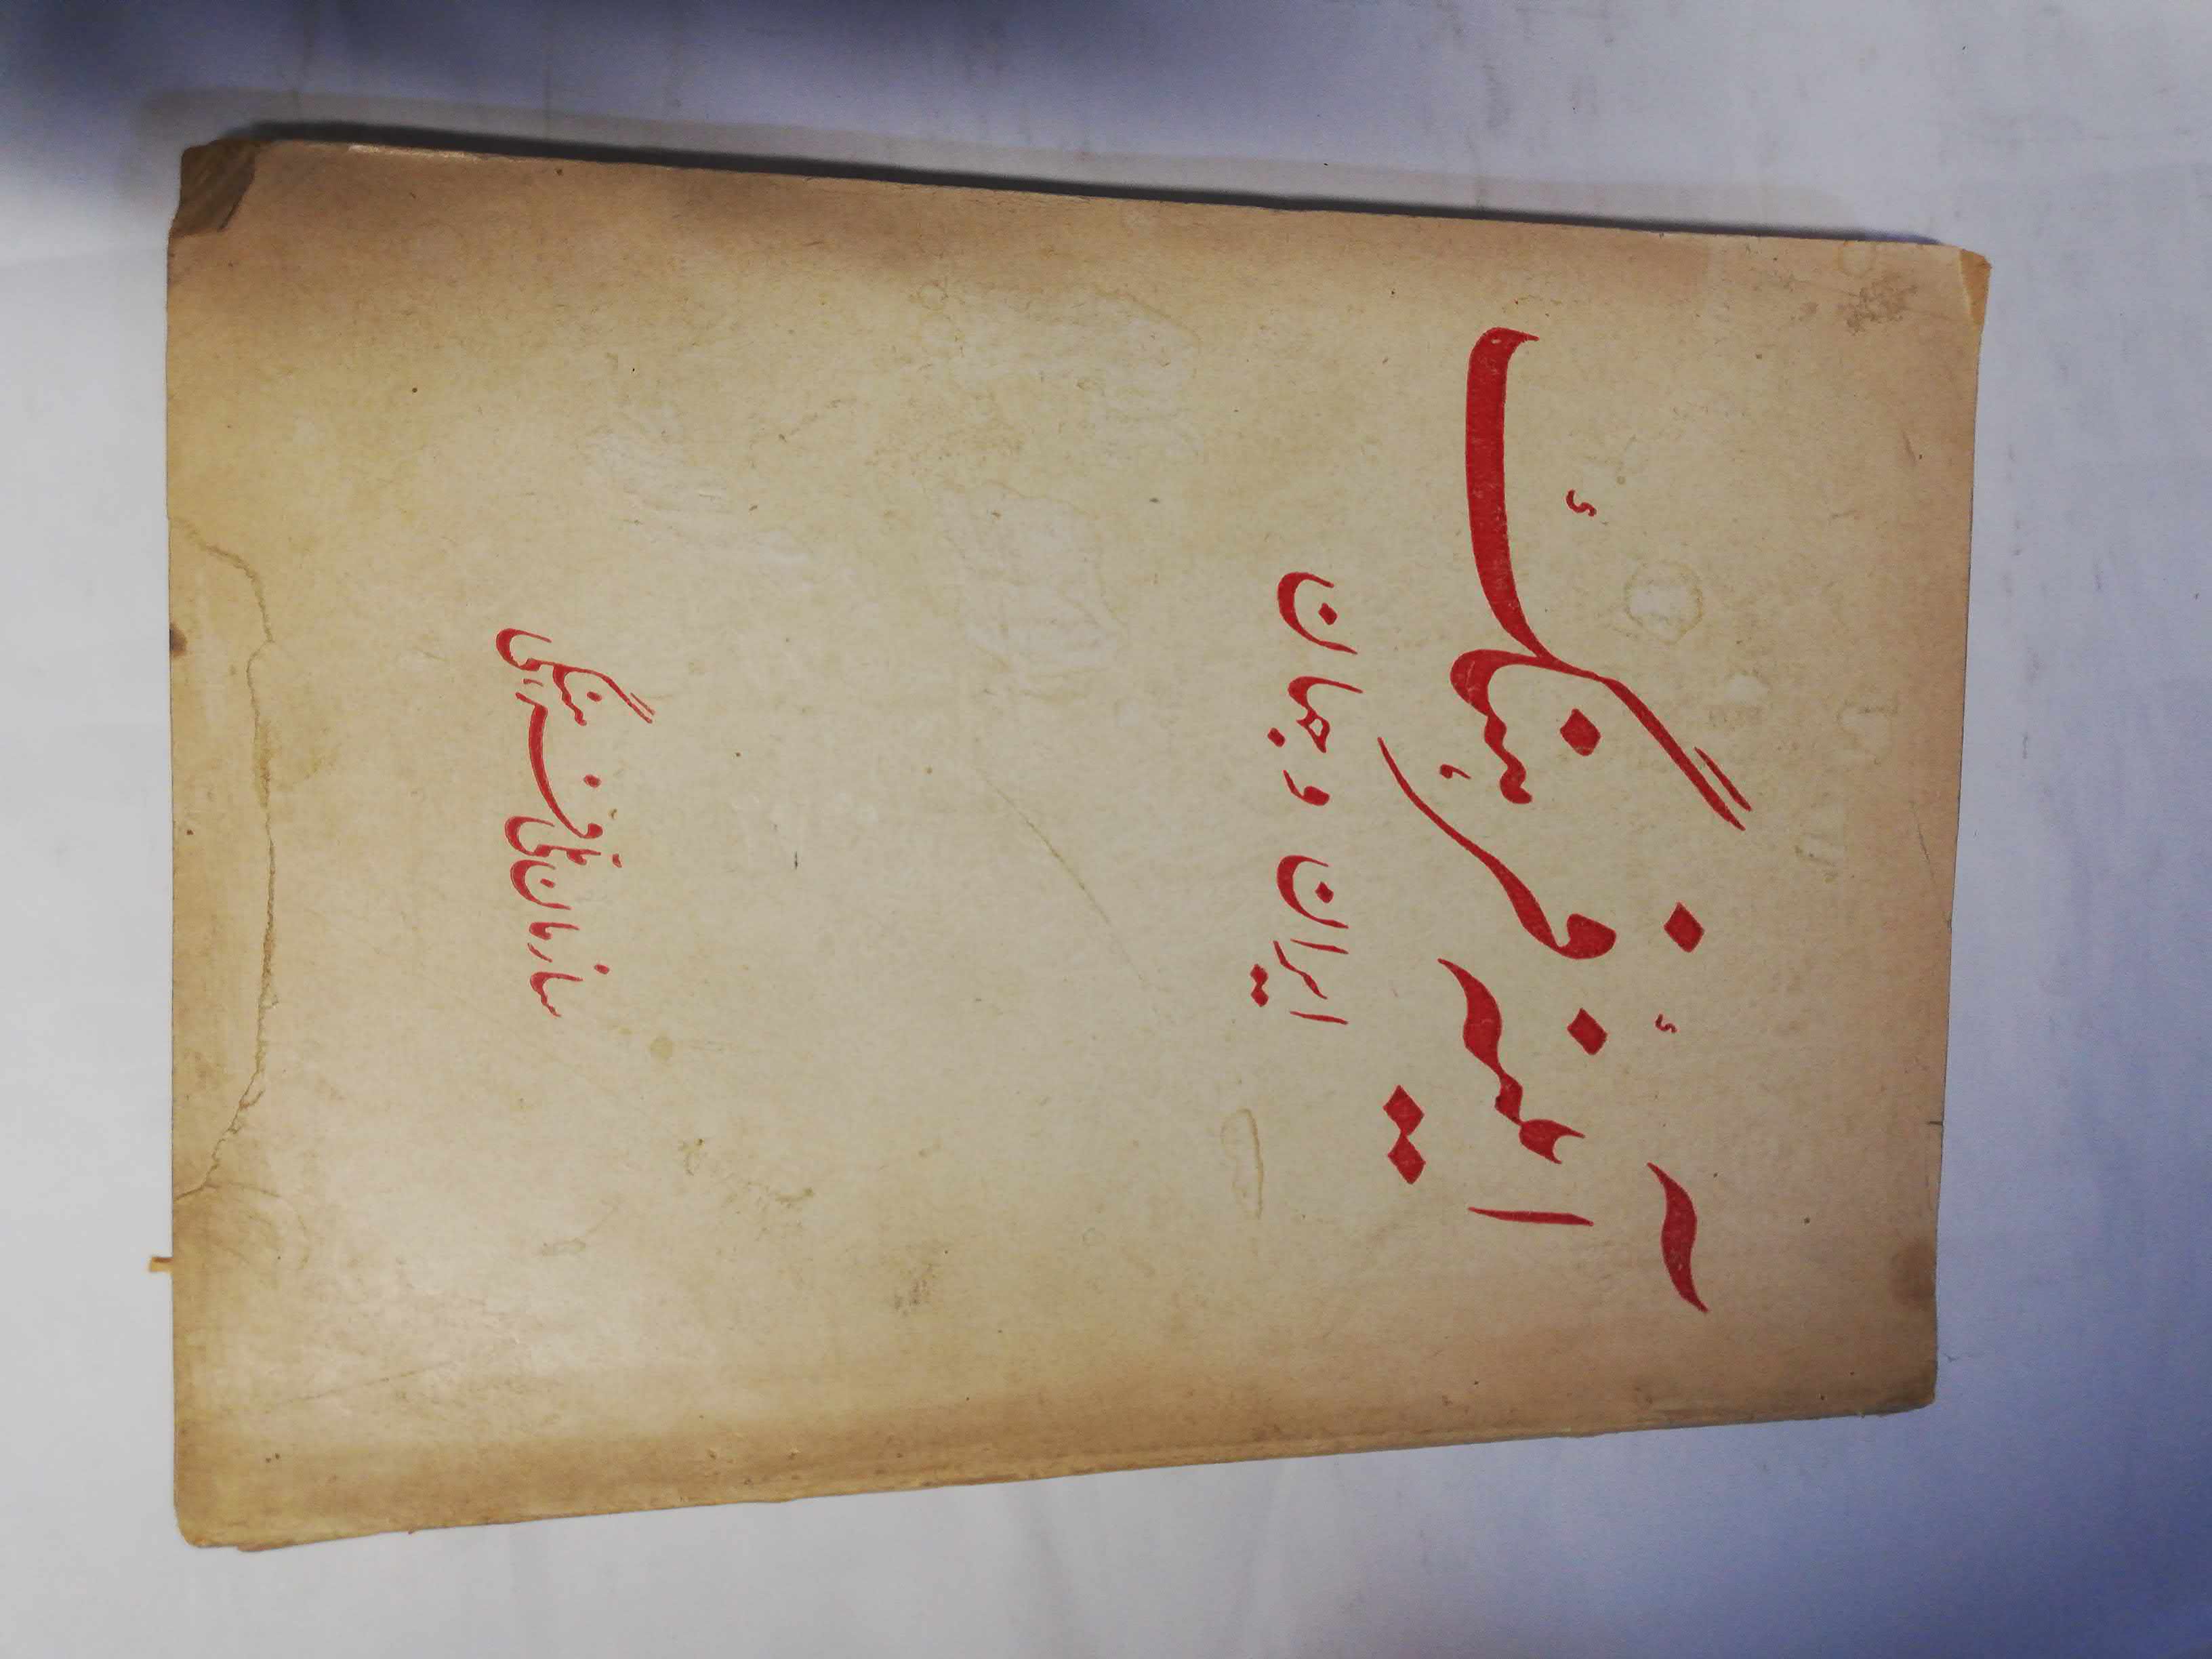 آئینهٔ فرهنگ
ایران و جهان
سازمان ملی فرهنگی